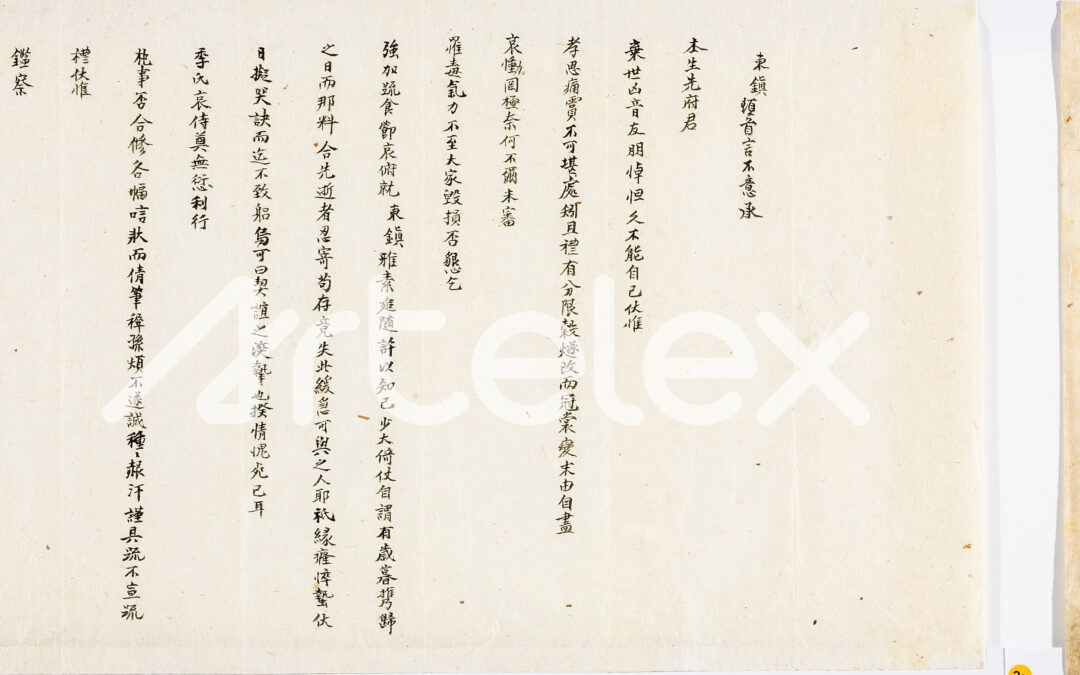 東鎭頓首言不意承
本生先府君
棄世凶音友朋悼怛久不能自已伏惟
孝思痛賈不可堪處矧且禮有分限穀燧改而冠裳變末由自盡
哀慟罔極奈何不爾未審
罹毒氣力不至大家毀損否懇乞
強加疏食節哀俯就 東鎭雅素追隨許以知已少大倚仗自謂有歲暮携歸
之日而那料 合先逝者忍寄苟存竟失此緩急可與之人耶祇緣癃悴蟄伏
日擬哭訣而迄不致船烏可曰契誼之深摯也揆情愧死已耳
季氏哀侍奠無愆利行
札事否合修各幅唁狀而倩筆稚孫煩不遂誠種〻赧汗謹具疏不宣疏
禮伏惟
鑑察
Artelex